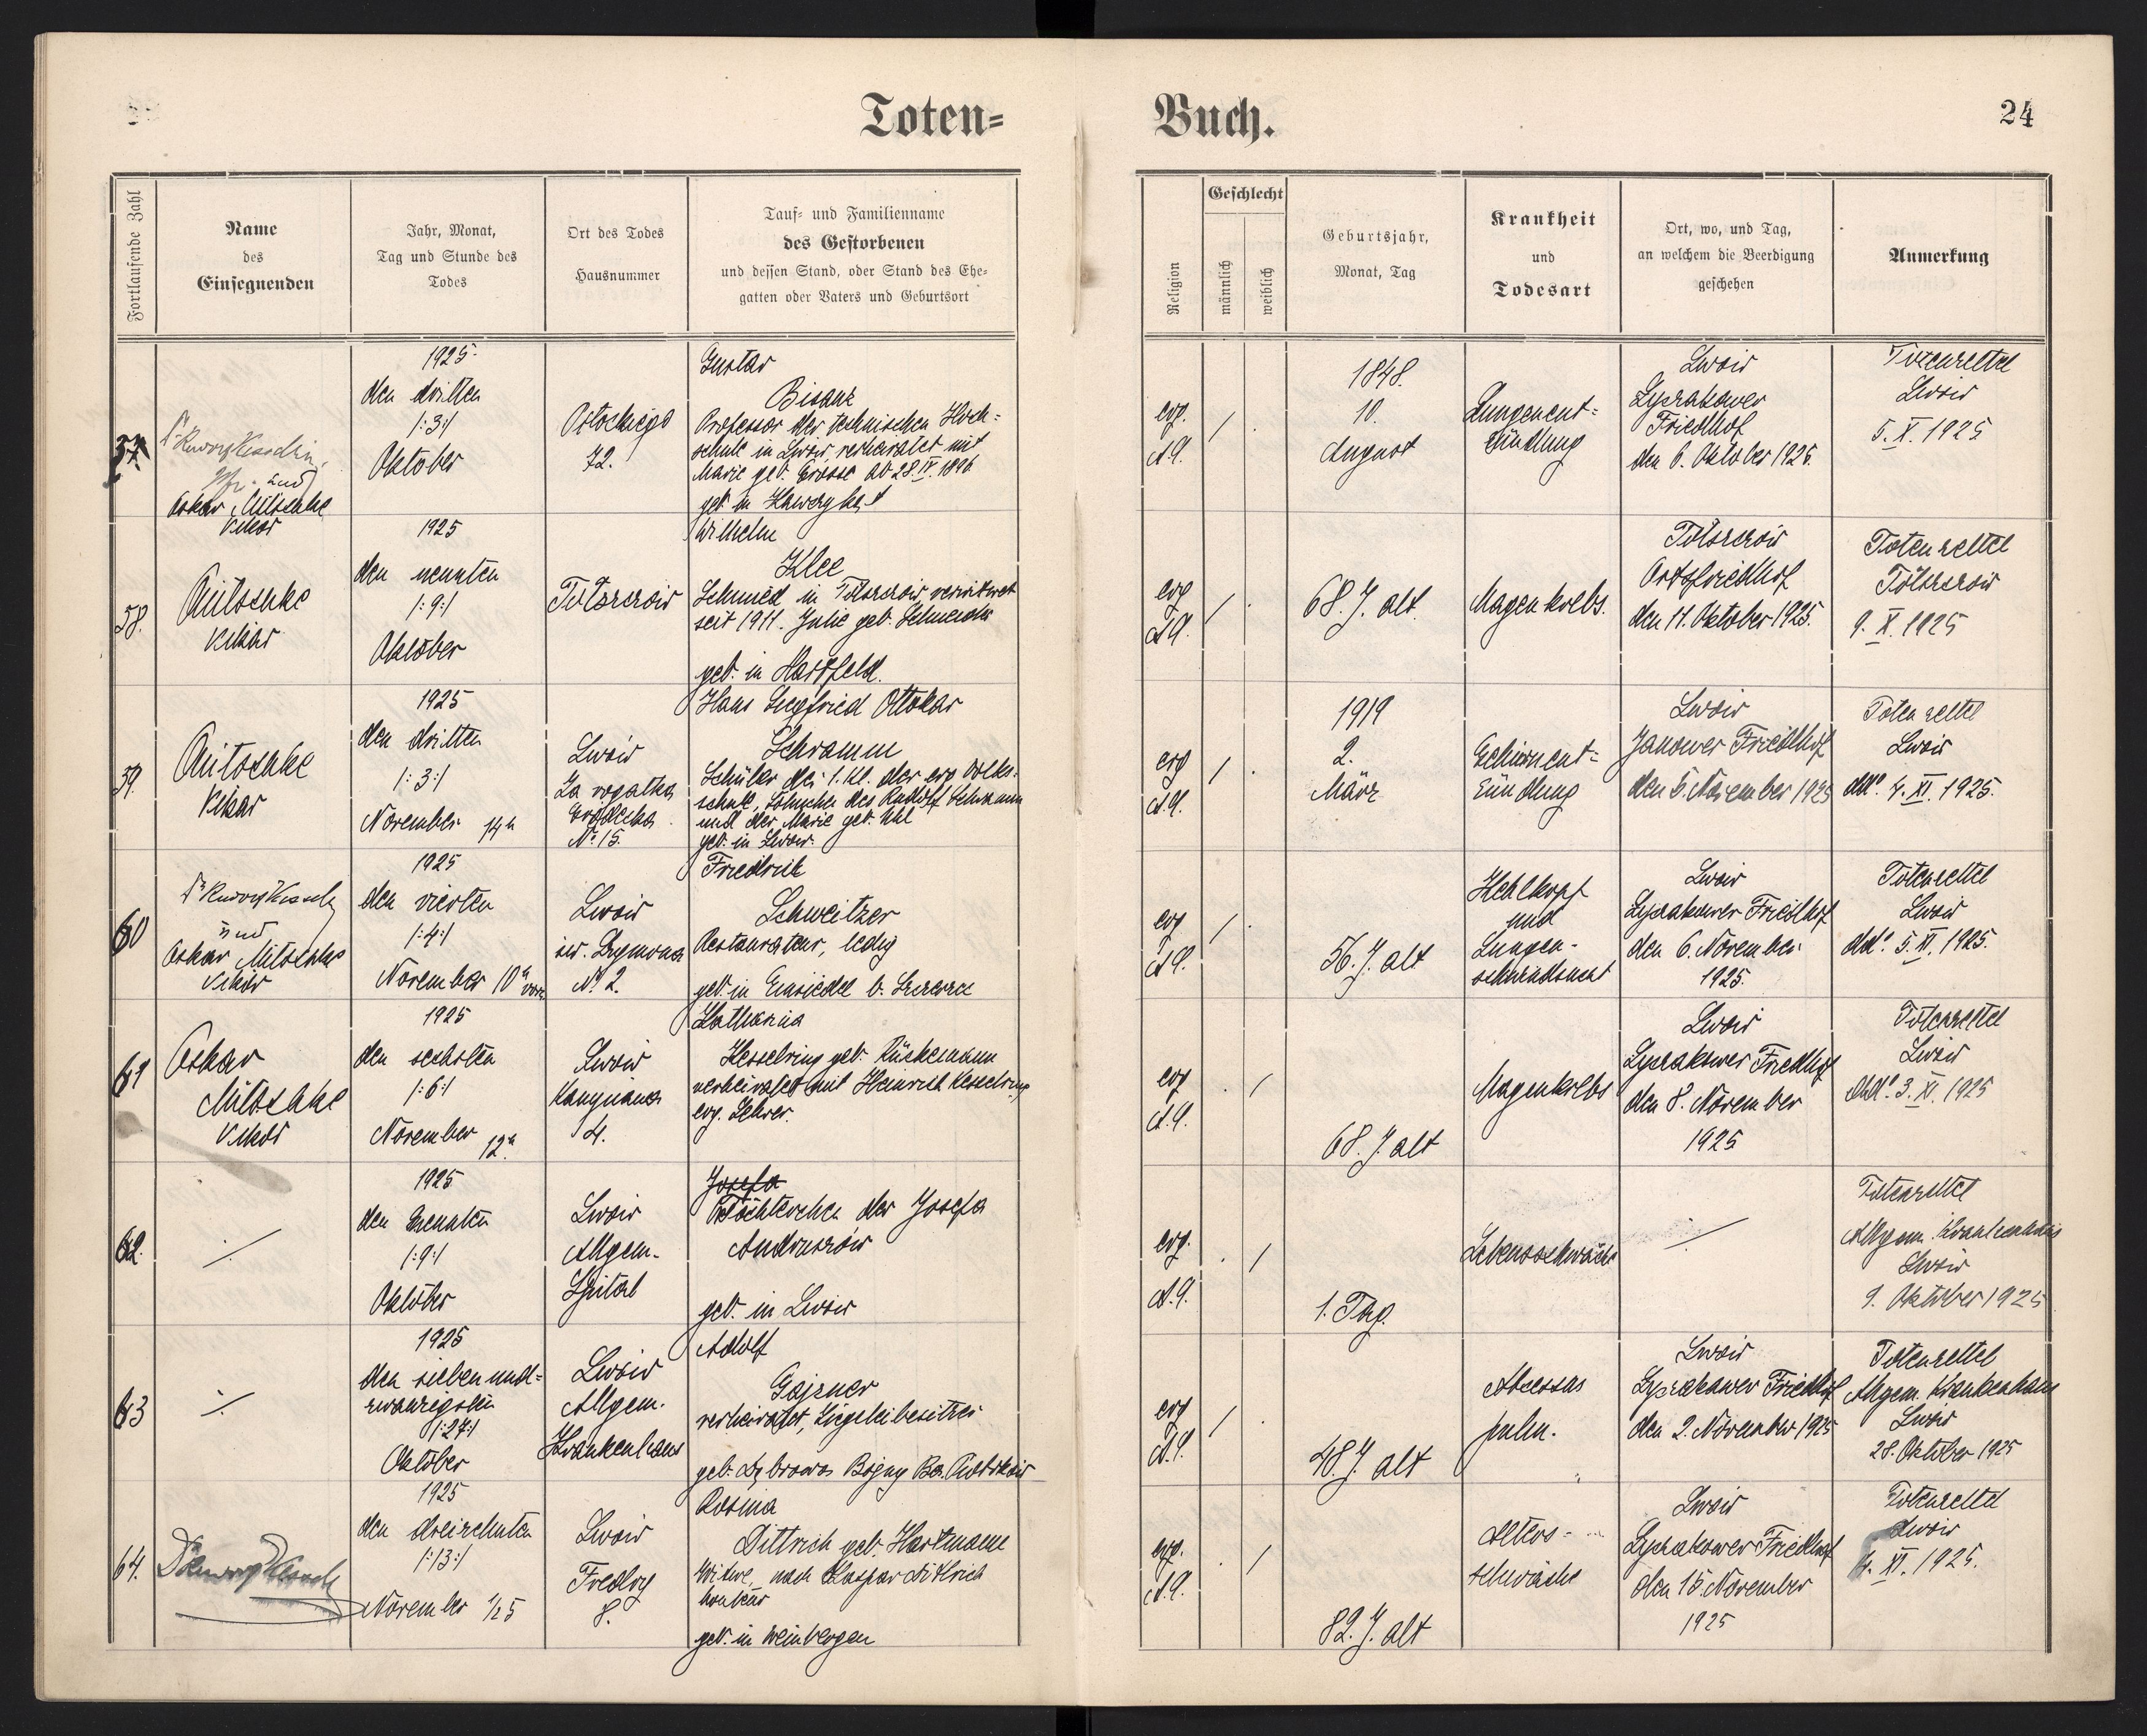 Toten-
Buch.
24
Fortlaufende Zahl
Name
des
Einsegnenden
Jahr, Monat,
Tag und Stunde des
Todes
Ort des Todes
Hausnummer
Tauf- und Familienname
des Gestorbenen
und dessen Stand, oder Stand des Ehe-
gatten oder Vaters und Geburtsort
Religion
Geschlecht
männlich
weiblich
Geburtsjahr,
Monat, Tag
Krankheit
und
Todesart
Ort, wo, und Tag,
an welchem die Beerdigung
geschehen
Anmerkung
57.
und
Oskar Mitschke
Vikar
1925
den dritten
/:3:/
Oktober
72.
Gustav
Bisanz
Professor der technischen Hoch-
schule in Lwów, verheiratet mit
Marie geb. Grosse ab 28.IV.1896
geb. in
evg.
A.C.
/ .
1848.
10.
August
Lungenent-
zündung
Lwów
Lyczakower
Friedhof
den 6. Oktober 1925.
Totenzettel
Lwów
5. X. 1925
58.
Mitschke
Vikar
1925
den neunten
/:9:/
Oktober
Wilhelm
Klee
Schmied in verwitwet
seit 1911. Julie geb.
geb. in Hartfeld.
evg
A.C.
/ .
68. J. alt
Magenkrebs.
Ortsfriedhof
den 11. Oktober 1925.
Totenzettel
9. X. 1925
59.
Mitschke
Vikar
1925
den dritten
/:3:/
November 14h
Lwów
Za rogatką
Gródecka
No. 15.
Hans Siegfried Ottokar
Schramm
Schüler der 1. Kl. der evg Volks-
schule, Söhnchen des Rudolf Schramm
und der Marie geb. Uhl
geb. in Lwow.
evg
A.C.
/ .
1919
2.
März
Gehirnent-
zündung
Lwów
Janower Friedhof
den 5. November 1925
Totenzettel
Lwów
ddo. 4. XI. 1925.
60
und
Oskar Mitschke
Vikar
1925
den vierten
/:4:/
November 10h vorm
Lwów
św. Zygmunta
No. 2.
Friedrich
Schweitzer
Restaurateur, ledig
geb. in Einsiedel b. Szczerzec
evg
A.C.
/ .
56. J. alt
Kehlkopf
und
Lungen-
schwindsucht
Lwów
Lyczakower Friedhof
den 6. November
1925.
Totenzettel
Lwów
ddo. 5. XI. 1925.
61
Oskar
Mitschke
Vikar
1925
den sechsten
/:6:/
November 12h
Lwów
4.
Katharina
Hesselring geb. Rückemann
verheiratet mit Heinrich Kesselring
evg. Lehrer.
evg
A.C.
. /
68. J. alt
Magenkrebs
Lwów
Lyczakower Friedhof
den 8. November
1925
Totenzettel
Lwów
ddo. 3. XI. 1925
62.
./.
1925
den neunten
/:9:/
Oktober
Lwów
Allgem.
Spital
Josefa
Töchterchen der Josefa
Andruszów
geb. in Lwów
evg.
A.C.
. /
1. Tag.
Lebensschwäche
./.
Totenzettel
Allgem. Krankenhaus
Lwów
9. Oktober 1925
63
./.
1925
den siebenund-
zwanzigsten
/:27:/
Oktober
Lwów
Allgem.
Krankenhaus
Adolf
Gajzner
verheiratet, Ziegeleibesitzer
geb.
evg
A.C.
/ .
48. J. alt
Abcessus
pulm.
Lwów
Lyczakower Friedhof
den 2. November 1925
Totenzettel
Allgem. Krankenhaus
Lwów
28. Oktober 1925
64.
1925
den dreizehnten
/:13:/
November 1/25
Lwów
Fredry
8.
Rosina
Dittrich geb. Hartmann
Witwe, nach Kaspar Dittrich
geb. in Weinbergen
evg.
A.C.
. /
82. J. alt
Alters-
schwäche
Lwów
Lyczakower Friedhof
den 15. November
1925
Totenzettel
Lwów
XI. 1925.